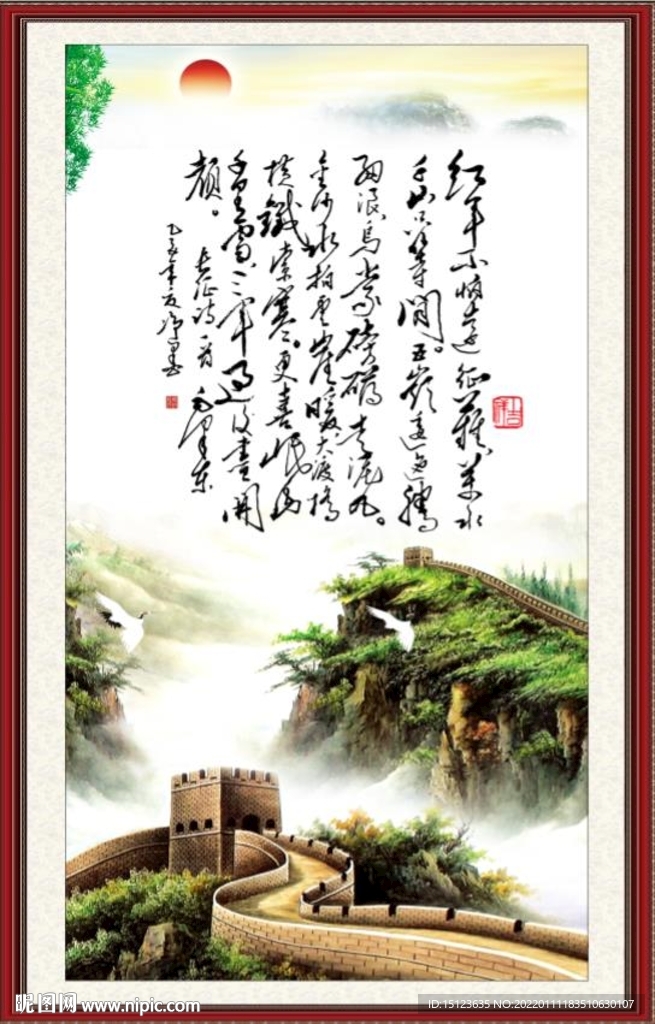 红军不怕远征難萬水
千山只等閒。五嶺逶迤腾
细浪乌蒙磅礴走泥丸。
金沙水拍雲崖暖大渡橋
横鐵索寒。更喜岷山
千里雪三军过後盡開
颜。
长征诗一首 毛泽东
昵图网 www.nipic.com
ID:15123635 NO:20220111183510630107